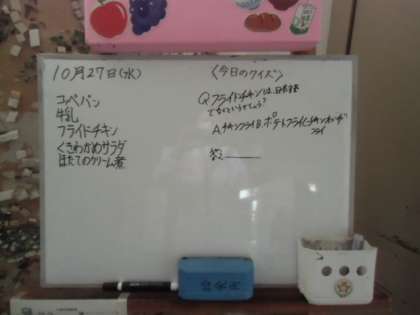 10月27日(水)
コペパン
牛乳
フライドチキン
くきわかめサラダ
ほたてのクリーム煮
〈今日のクイズ〉
Q フライドチキンは、日本言葉
でなんというでしょう?
A.チキンフライ B.ポテトフライ C.チキンオレンジ
フライ
答え